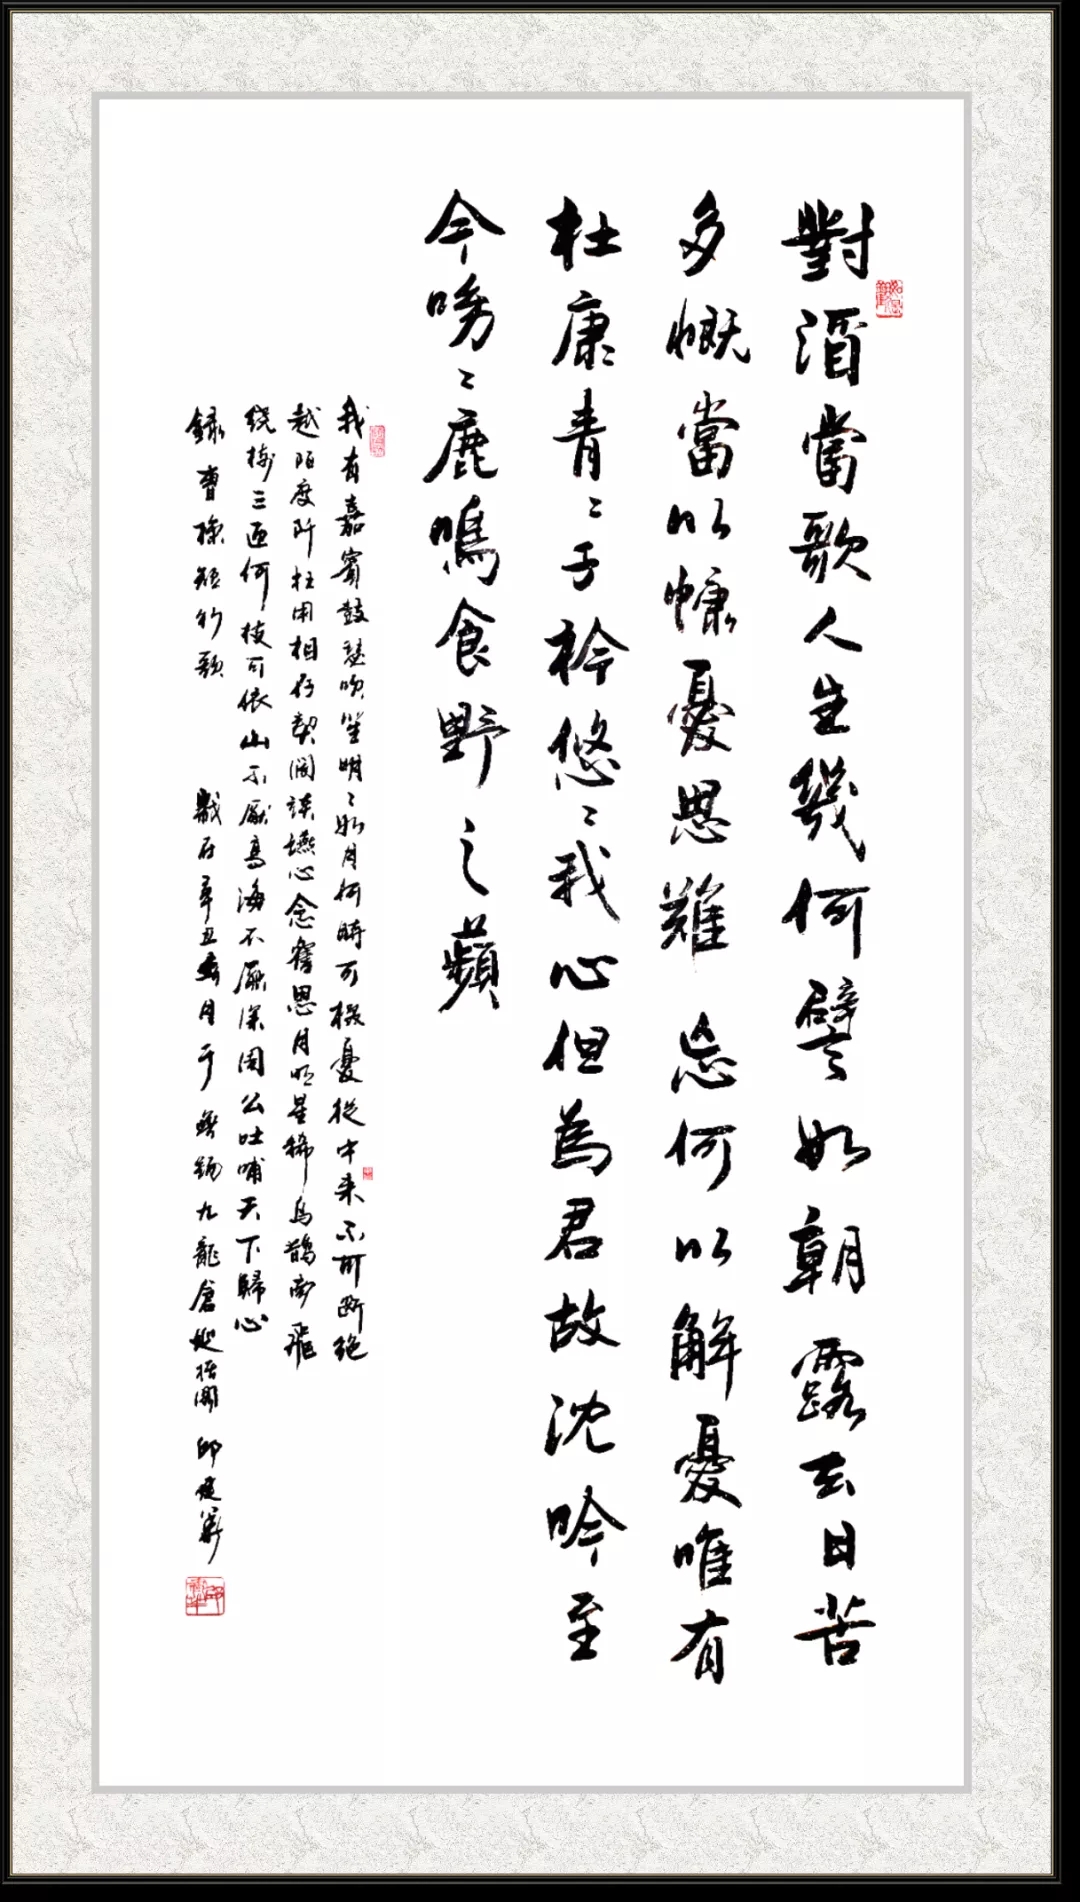 對酒當歌人生幾何譬如朝露去日苦
多慨當以慷憂思難忘何以解憂唯有
杜康青〻子衿悠〻我心但為君故沈吟至
今呦〻鹿鳴食野之蘋
我有嘉賓鼓瑟吹笙明〻如月何時可掇憂從中来不可断绝
越陌度阡枉用相存契阔談讌心念舊恩月明星稀烏鵲南飛
绕樹三匝何枝可依山不厭高海不厭深周公吐哺天下歸心
録曹操短行歌
歲在辛丑月于無錫九龍倉 邱